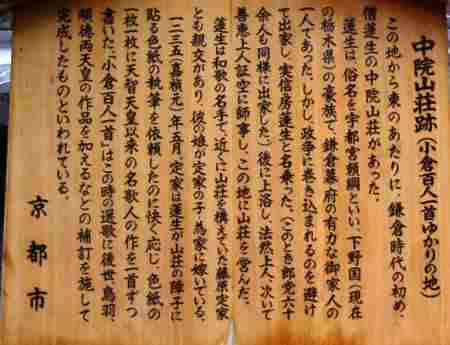 中院山荘跡(小倉百人一首ゆかりの地)
この地から東のあたりに、鎌倉時代の初め、
僧蓮生の中院山荘があった。
蓮生は、俗名を宇都宮頼綱といい、下野国(現在
の栃木県)の豪族で、鎌倉幕府の有力な御家人の
一人であった。しかし、政争に巻き込まれるのを避け
て出家し、実信房蓮生と名乗った。(このとき郎党六十
余人も同様に出家した)後に上洛し、法然上人、次いで
善恵上人証空に師事し、この地に山荘を営んだ。
蓮生は和歌の名手で、近くに山荘を構えていた藤原定家
とも親交があり、彼の娘が定家の子・為家に嫁いでいる。
一二三五(嘉禎元)年五月、定家は蓮生が山荘の障子に
貼る色紙の執筆を依頼したのに快く応じ、色紙の
一枚一枚に天智天皇以来の名歌人の作を一首ずつ
書いた。「小倉百人一首」はこの時の選歌に後世、鳥羽、
順徳両天皇の作品を加えるなどの補訂を施して
完成したものといわれている。
京都市